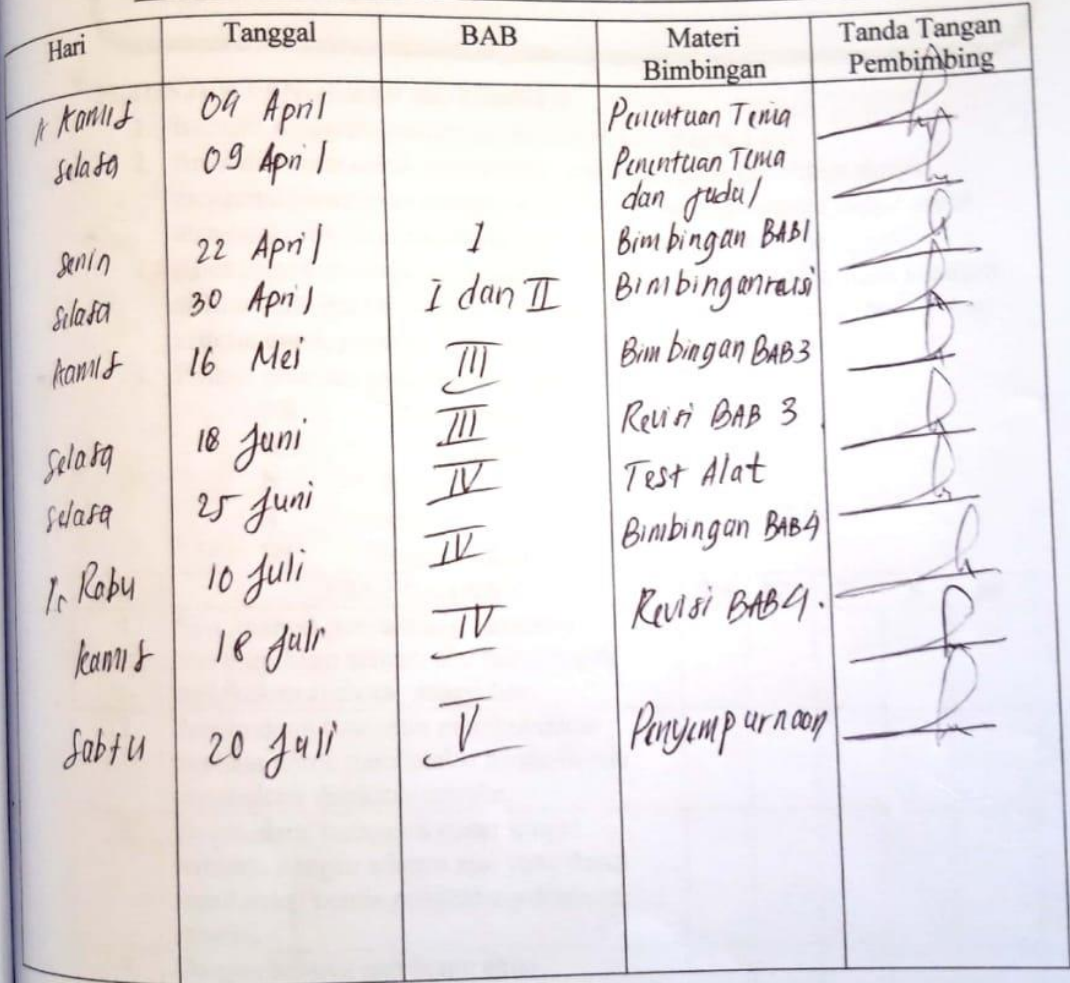 Hari Tanggal BAB Materi Bimbingan Tanda Tangan Pembimbing
Kamis 04 April Penentuan Tema
Selasa 09 April Penentuan Tema
dan Judul
Senin 22 April I Bimbingan BAB1
Selasa 30 April I dan II Bimbingan revisi
Kamis 16 Mei III Bimbingan BAB3
Selasa 18 Juni III Revisi BAB 3
Selasa 25 Juni IV Test Alat
Rabu 10 Juli IV Bimbingan BAB4
Kamis 18 Juli IV Revisi BAB 4.
Sabtu 20 Juli V Penyempurnaan